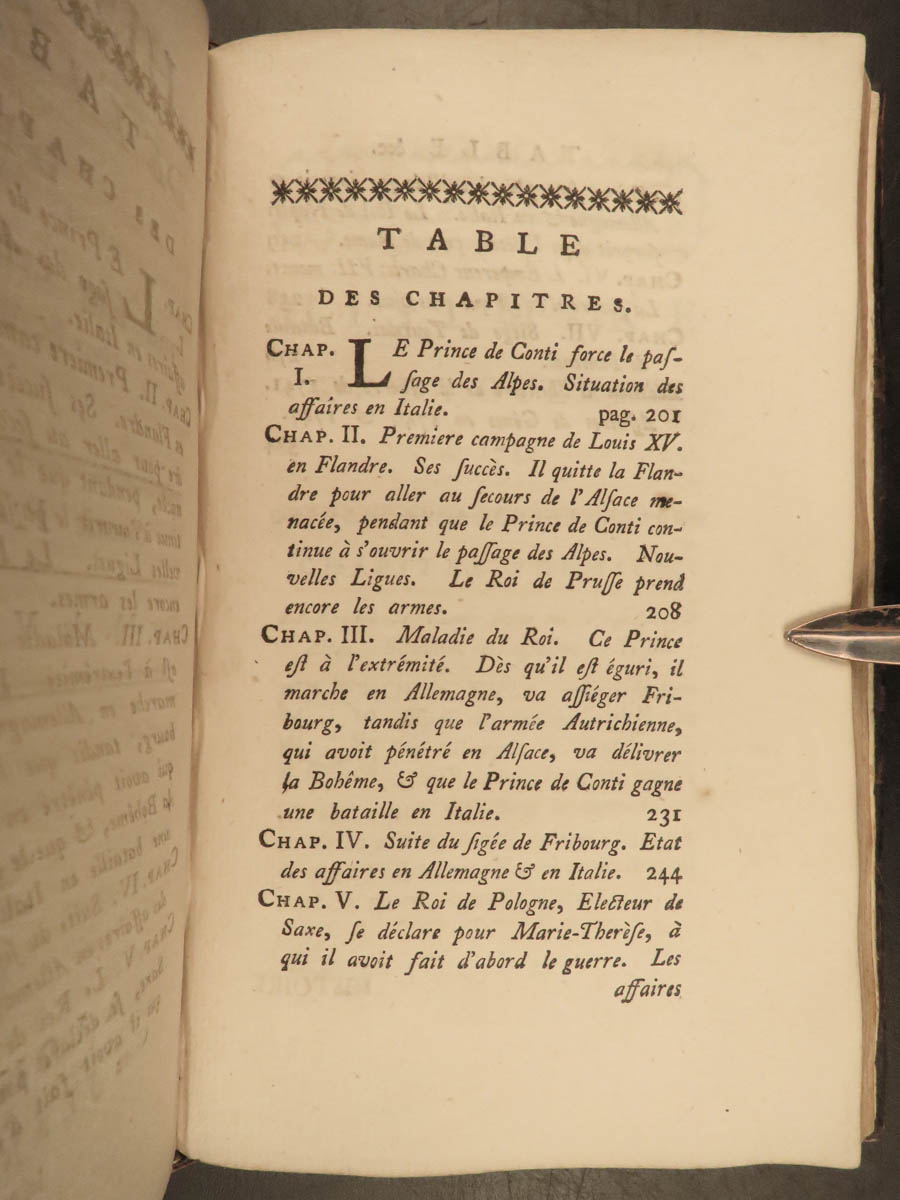 TABLE
DES CHAPITRES.
CHAP. I. LE Prince de Conti force le paſ-
ſage des Alpes. Situation des
affaires en Italie. pag. 201
CHAP. II. Premiere campagne de Louis XV.
en Flandre. Ses ſuccès. Il quitte la Flan-
dre pour aller au ſecours de l'Alſace me-
nacée, pendant que le Prince de Conti con-
tinue à s'ouvrir le paſſage des Alpes. Nou-
velles Ligues. Le Roi de Pruſſe prend
encore les armes. 208
CHAP. III. Maladie du Roi. Ce Prince
eſt à l'extrémité. Dès qu'il eſt éguri, il
marche en Allemagne, va aſſiéger Fri-
bourg, tandis que l'armée Autrichienne,
qui avoit pénétré en Alſace, va délivrer
la Bohême, & que le Prince de Conti gagne
une bataille en Italie. 231
CHAP. IV. Suite du ſigée de Fribourg. Etat
des affaires en Allemagne & en Italie. 244
CHAP. V. Le Roi de Pologne, Electeur de
Saxe, ſe déclare pour Marie-Therèſe, à
qui il avoit fait d'abord le guerre. Les
affaires